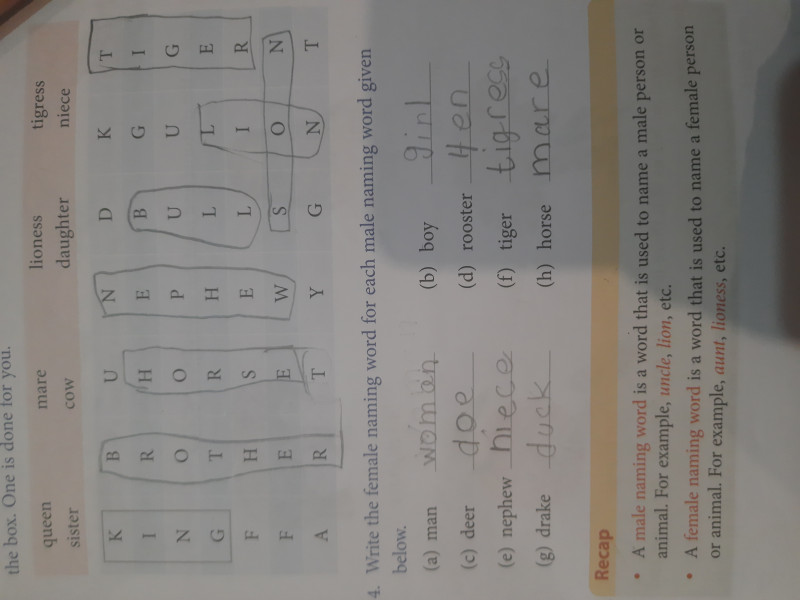 the box. One is done for you.
queen mare lioness tigress
sister cow daughter niece
K B U N D K T
I R H E B G I
N O O P U U G
G T R H L L E
F H S E L I R
F E E W S O N
A R T Y G N T
4. Write the female naming word for each male naming word given
below.
(a) man woman (b) boy girl
(c) deer doe (d) rooster Hen
(e) nephew niece (f) tiger tigress
(g) drake duck (h) horse mare
Recap
• A male naming word is a word that is used to name a male person or
animal. For example, uncle, lion, etc.
• A female naming word is a word that is used to name a female person
or animal. For example, aunt, lioness, etc.